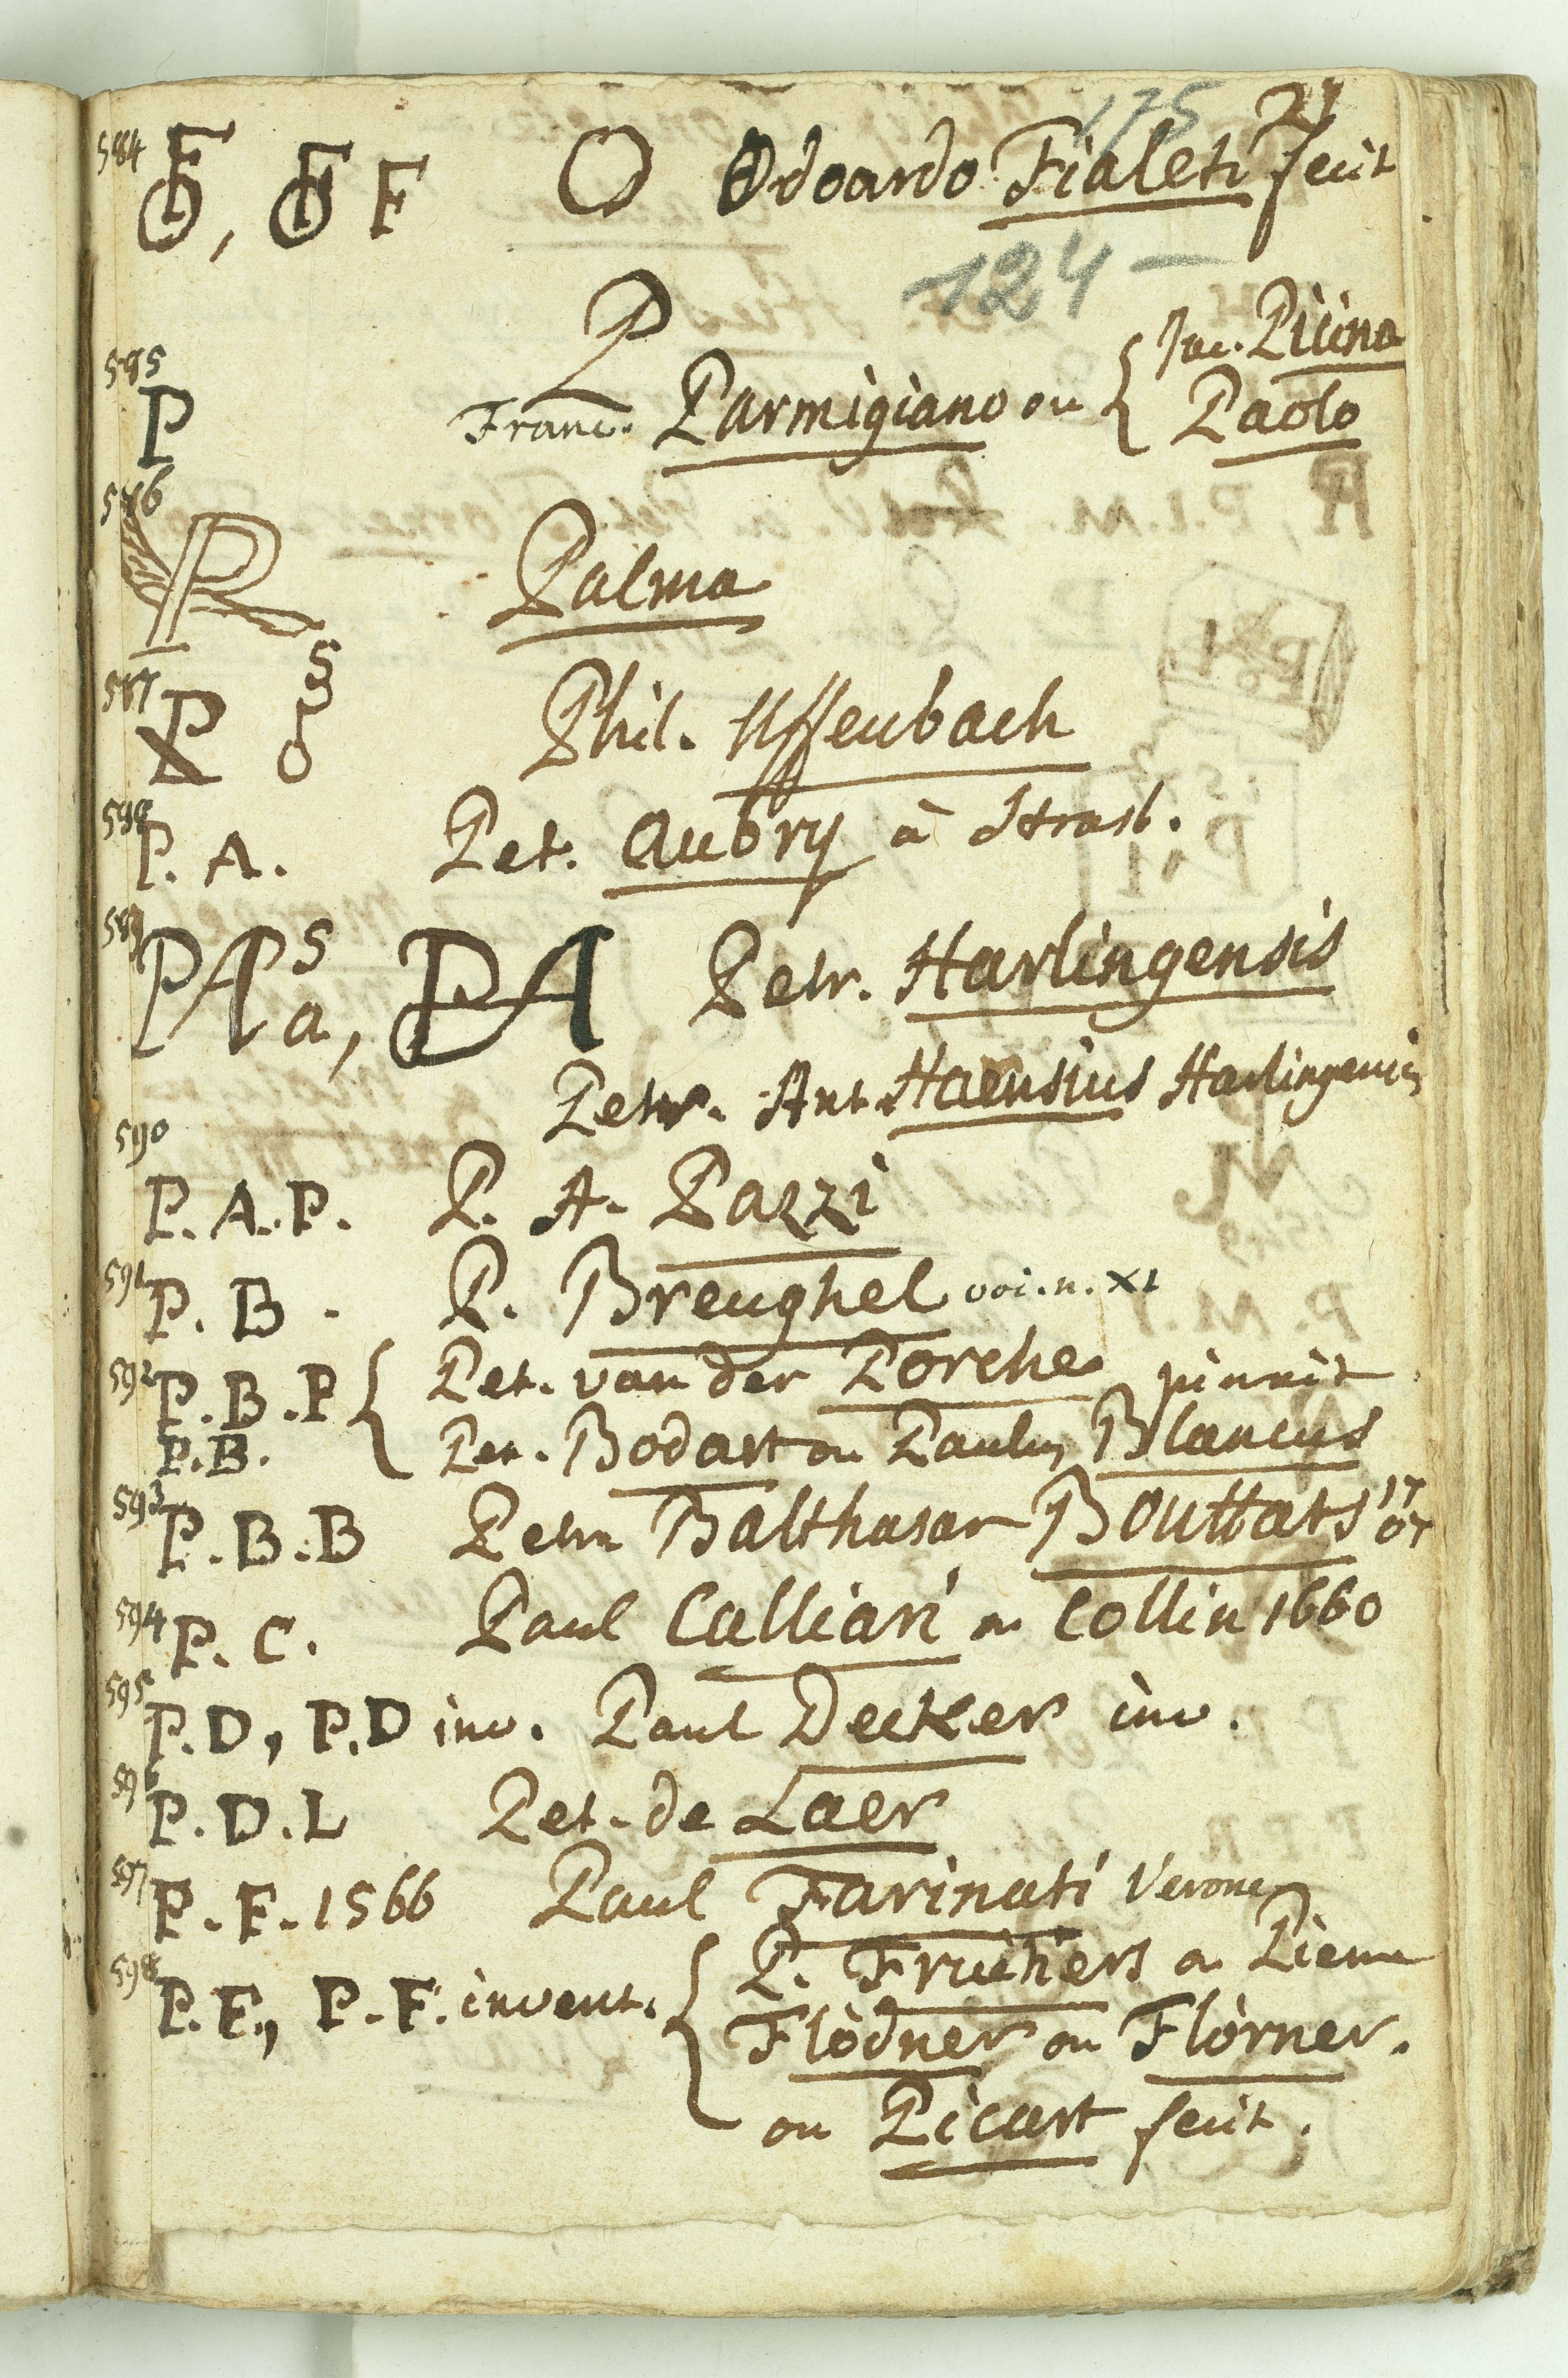 175 21
584 OF, OF F O Odoardo Fialeti fecit
124 —
P
585 P Franc. Parmigiano ou { Jac. Piicino
Paolo
586 P Palma
587 P S Phil. Uffenbach
588 P. A. Pet. Aubry à Strasb.
589 PAP S a, PA Petr. Harlingensis
Petr. Ant. Haensius Harlingensis
590 P. A. P. P. A. Pazzi
591 P. B. P. Breughel voi. n. XI
592 P. B. P { Pet. van der Porche pinxit
P. B. Pet. Bodart ou Paulus Blancus
593 P. B. B Petr. Balthasar Bouttats 1707
594 P. C. Paul Calliari ou Collin 1660
595 P. D, P. D inv. Paul Decker inv.
596 P. D. L Pet. de Laer
597 P. F. 1566 Paul Farinati Verone
598 P. F., P. F. invent. { P. Fruitiers ou Pierre
Flödner ou Flörner.
ou Picart fecit.